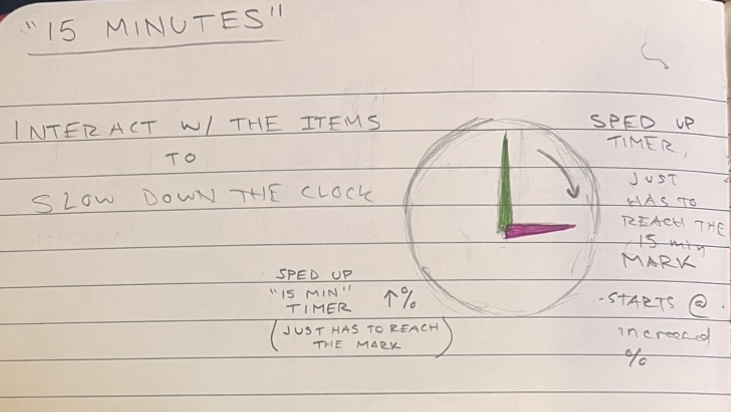 "15 MINUTES"
INTERACT W/ THE ITEMS
TO
SLOW DOWN THE CLOCK
SPED UP
"15 MIN" ↑%
TIMER
(JUST HAS TO REACH
THE MARK)
SPED UP
TIMER,
JUST
HAS TO
REACH THE
15 min
MARK
-STARTS @
increased
%